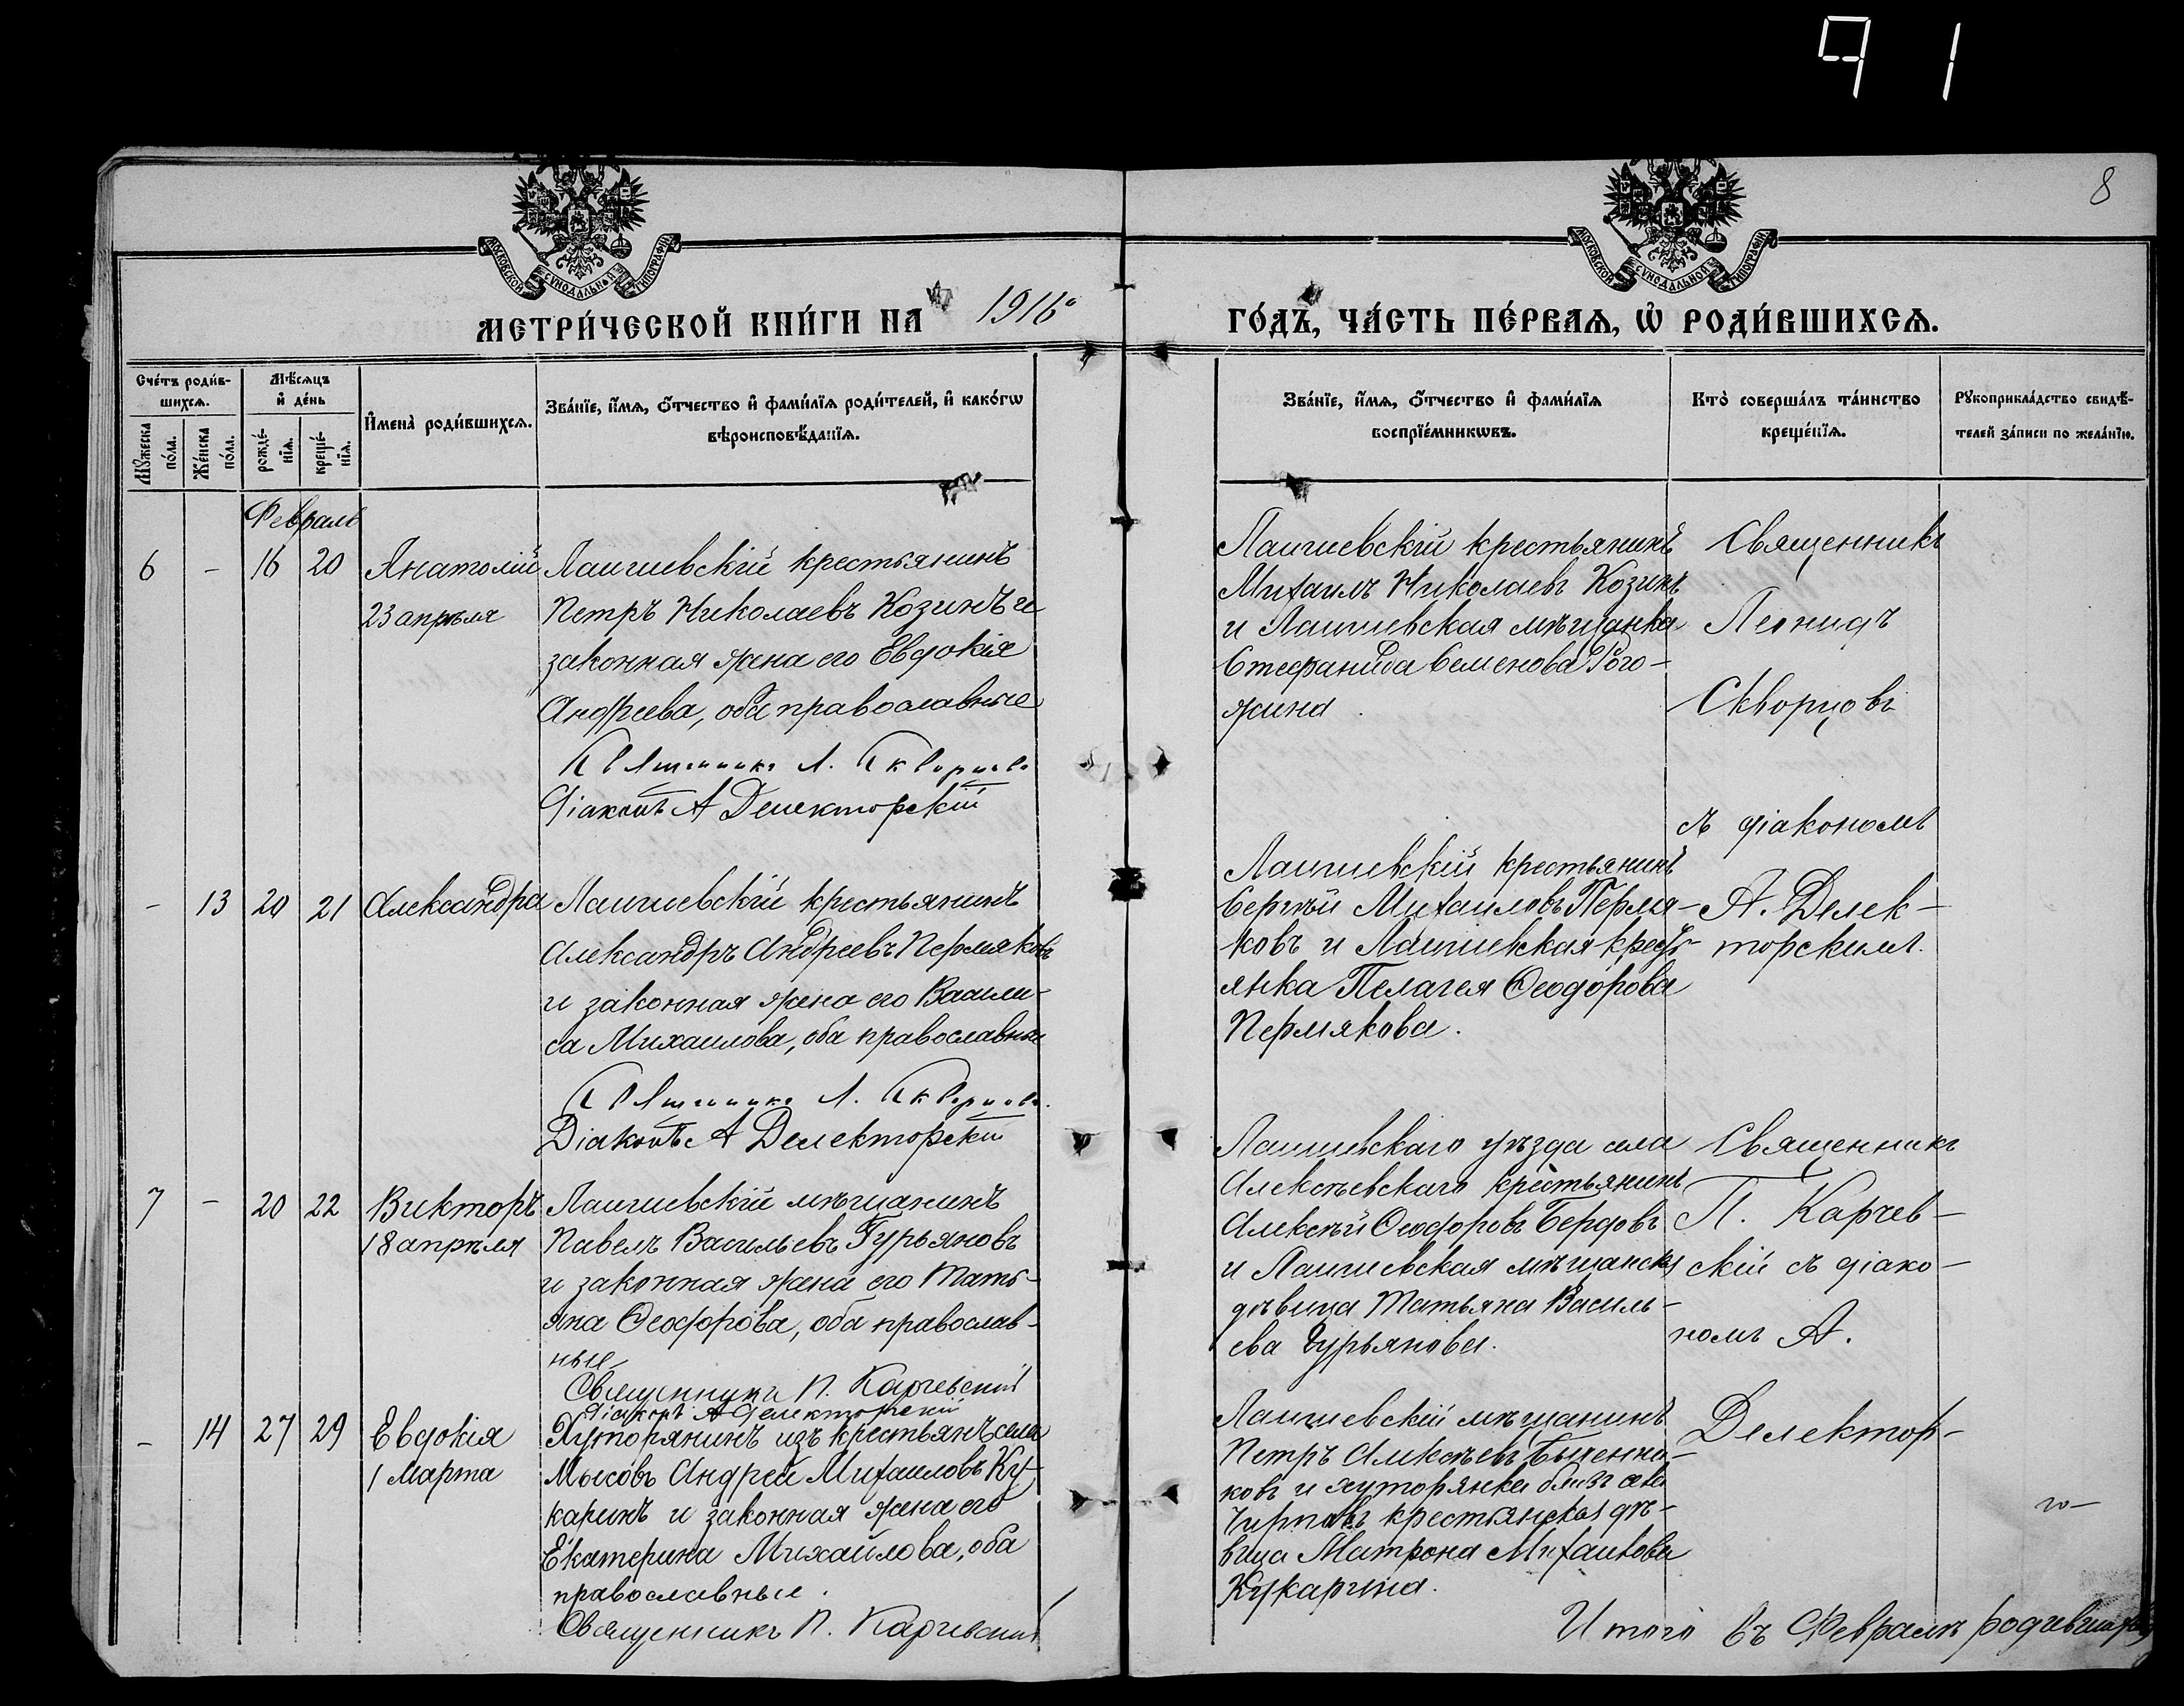 91
8
МОСКОВСКОЙ СѴНОДАЛЬНОЙ ТИПОГРАФІИ
МОСКОВСКОЙ СѴНОДАЛЬНОЙ ТИПОГРАФІИ
МЕТРИ́ЧЕСКОЙ КНИ́ГИ НА 1916º
ГО́ДЪ, ЧА́СТЬ ПЕ́РВАѦ, Ѡ҆ РОДИ́ВШИХСѦ.
Сче́тъ роди́в-
шихсѧ.
Мѣ́сѧцъ
и҆ де́нь
И҆мена̀ роди́вшихсѧ.
Зва́нїе, и҆́мѧ, ѻ҆́тчество и҆ фами́лїѧ роди́телей, и҆ како́гѡ
вѣроисповѣ́данїѧ.
Мꙋ́жеска
по́ла.
Же́нска
по́ла.
рожде́-
нїѧ.
креще́-
нїѧ.
Зва́нїе, и҆́мѧ, ѻ҆́тчество и҆ фами́лїѧ
воспрїе́мникѡвъ.
Кто̀ соверша́лъ та́инство
креще́нїѧ.
Рꙋкоприкла́дство свидѣ́-
телей за́писи по жела́нїю.
Февраль
6 - 16 20 Анатолій
23 апрѣля
Лаишевскій крестьянинъ
Петръ Николаевъ Козинъ и
законная жена его Евдокія
Андреева, оба православные
Священникъ Л. Скворцовъ
Діаконъ А Делекторскій
Лаишевскій крестьянинъ
Михаилъ Николаевъ Козинъ
и Лаишевская мѣщанка
Стефанида Семенова Рого-
жина
Священникъ
Леонидъ
Скворцовъ
съ діакономъ
А. Делек-
торскимъ.
- 13 20 21 Александра
Лаишевскій крестьянинъ
Александръ Андреевъ Пермяковъ
и законная жена его Васили-
са Михаилова, оба православные
Священникъ Л. Скворцовъ.
Діаконъ А Делекторскій
Лаишевскій крестьянинъ
Сергѣй Михаиловъ Пермя-
ковъ и Лаишевская кресть-
янка Пелагея Ѳеодорова
Пермякова.
7 - 20 22 Викторъ
18 апрѣля
Лаишевскій мѣщанинъ
Павелъ Васильевъ Гурьяновъ
и законная жена его Тать-
яна Ѳеодорова, оба православ-
ные
Священникъ П. Карчевскій
Діаконъ А Делекторскій
Лаишевскаго уѣзда села
Алексѣевскаго крестьянинъ
Алексѣй Ѳеодоровъ Бердовъ
и Лаишевская мѣщанская
дѣвица Татьяна Василь-
ева Гурьянова.
Священникъ
П. Карчев-
скій съ діако-
номъ А.
Делектор-
- 14 27 29 Евдокія
1 Марта
Хуторянинъ изъ крестьянъ села
Мысовъ Андрей Михаиловъ Ку-
каринъ и законная жена его
Екатерина Михайлова, оба
православные.
Священникъ П. Карчевскій
Лаишевскій мѣщанинъ
Петръ Алексѣевъ
ковъ и хуторянка близъ села
крестьянская дѣ-
вица Матрона Михаилова
Кукарина.
Итого въ Февралѣ родившихся